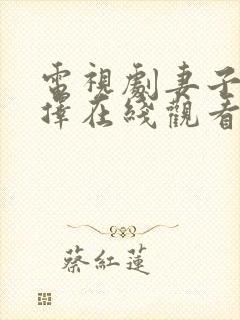 電視劇妻子
擇在綫觀看
蔡紅蓮